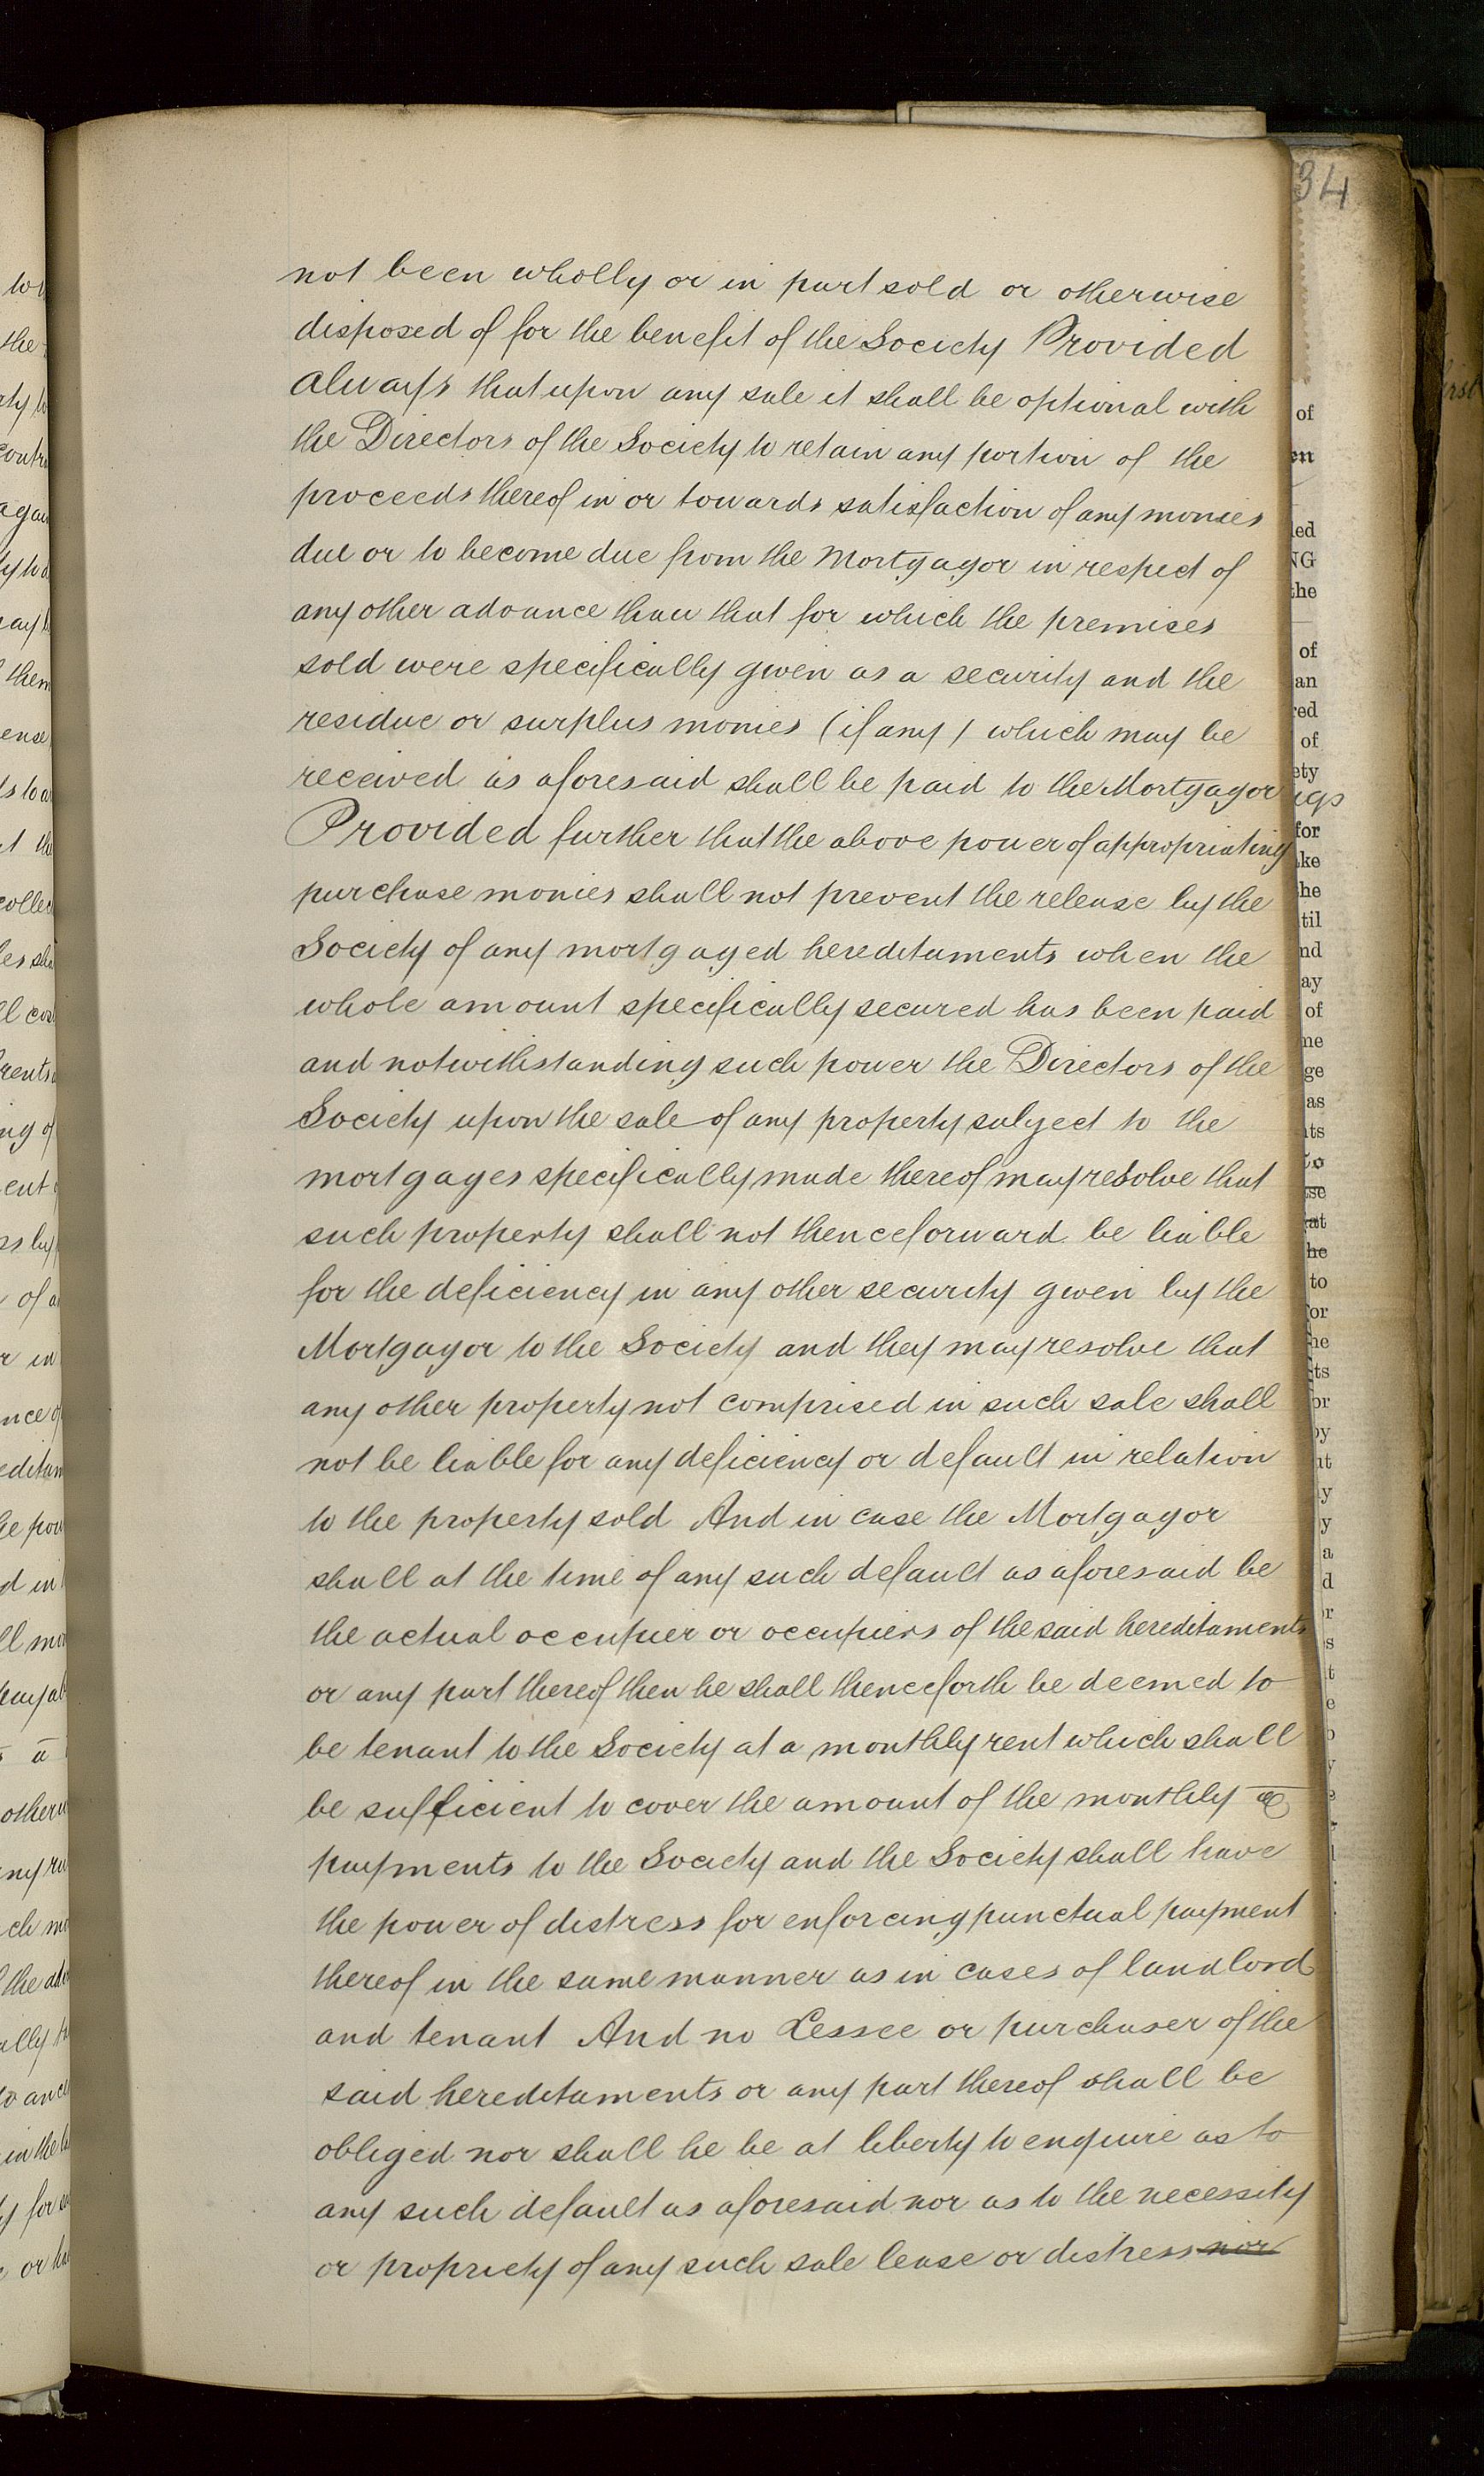 34
not been wholly or in part sold or otherwise
disposed of for the benefit of the Society Provided
always that upon any sale it shall be optional with
the Directors of the Society to retain any portion of the
proceeds thereof in or towards satisfaction of any monies
due or to become due from the Mortgagor in respect of
any other advance than that for which the premises
sold were specifically given as a security and the
residue or surplus monies (if any) which may be
received as aforesaid shall be paid to the Mortgagor
Provided further that the above power of appropriating
purchase monies shall not prevent the release by the
Society of any mortgaged hereditaments when the
whole amount specifically secured has been paid
and notwithstanding such power the Directors of the
Society upon the sale of any property subject to the
mortgages specifically made thereof may resolve that
such property shall not thenceforward be liable
for the deficiency in any other security given by the
Mortgagor to the Society and they may resolve that
any other property not comprised in such sale shall
not be liable for any deficiency or default in relation
to the property sold And in case the Mortgagor
shall at the time of any such default as aforesaid be
the actual occupier or occupiers of the said hereditaments
or any part thereof then he shall thenceforth be deemed to
be tenant to the Society at a monthly rent which shall
be sufficient to cover the amount of the monthly
payments to the Society and the Society shall have
the power of distress for enforcing punctual payment
thereof in the same manner as in cases of landlord
and tenant And no Lessee or purchaser of the
said hereditaments or any part thereof shall be
obliged nor shall he be at liberty to enquire as to
any such default as aforesaid nor as to the necessity
or propriety of any such sale lease or distress nor